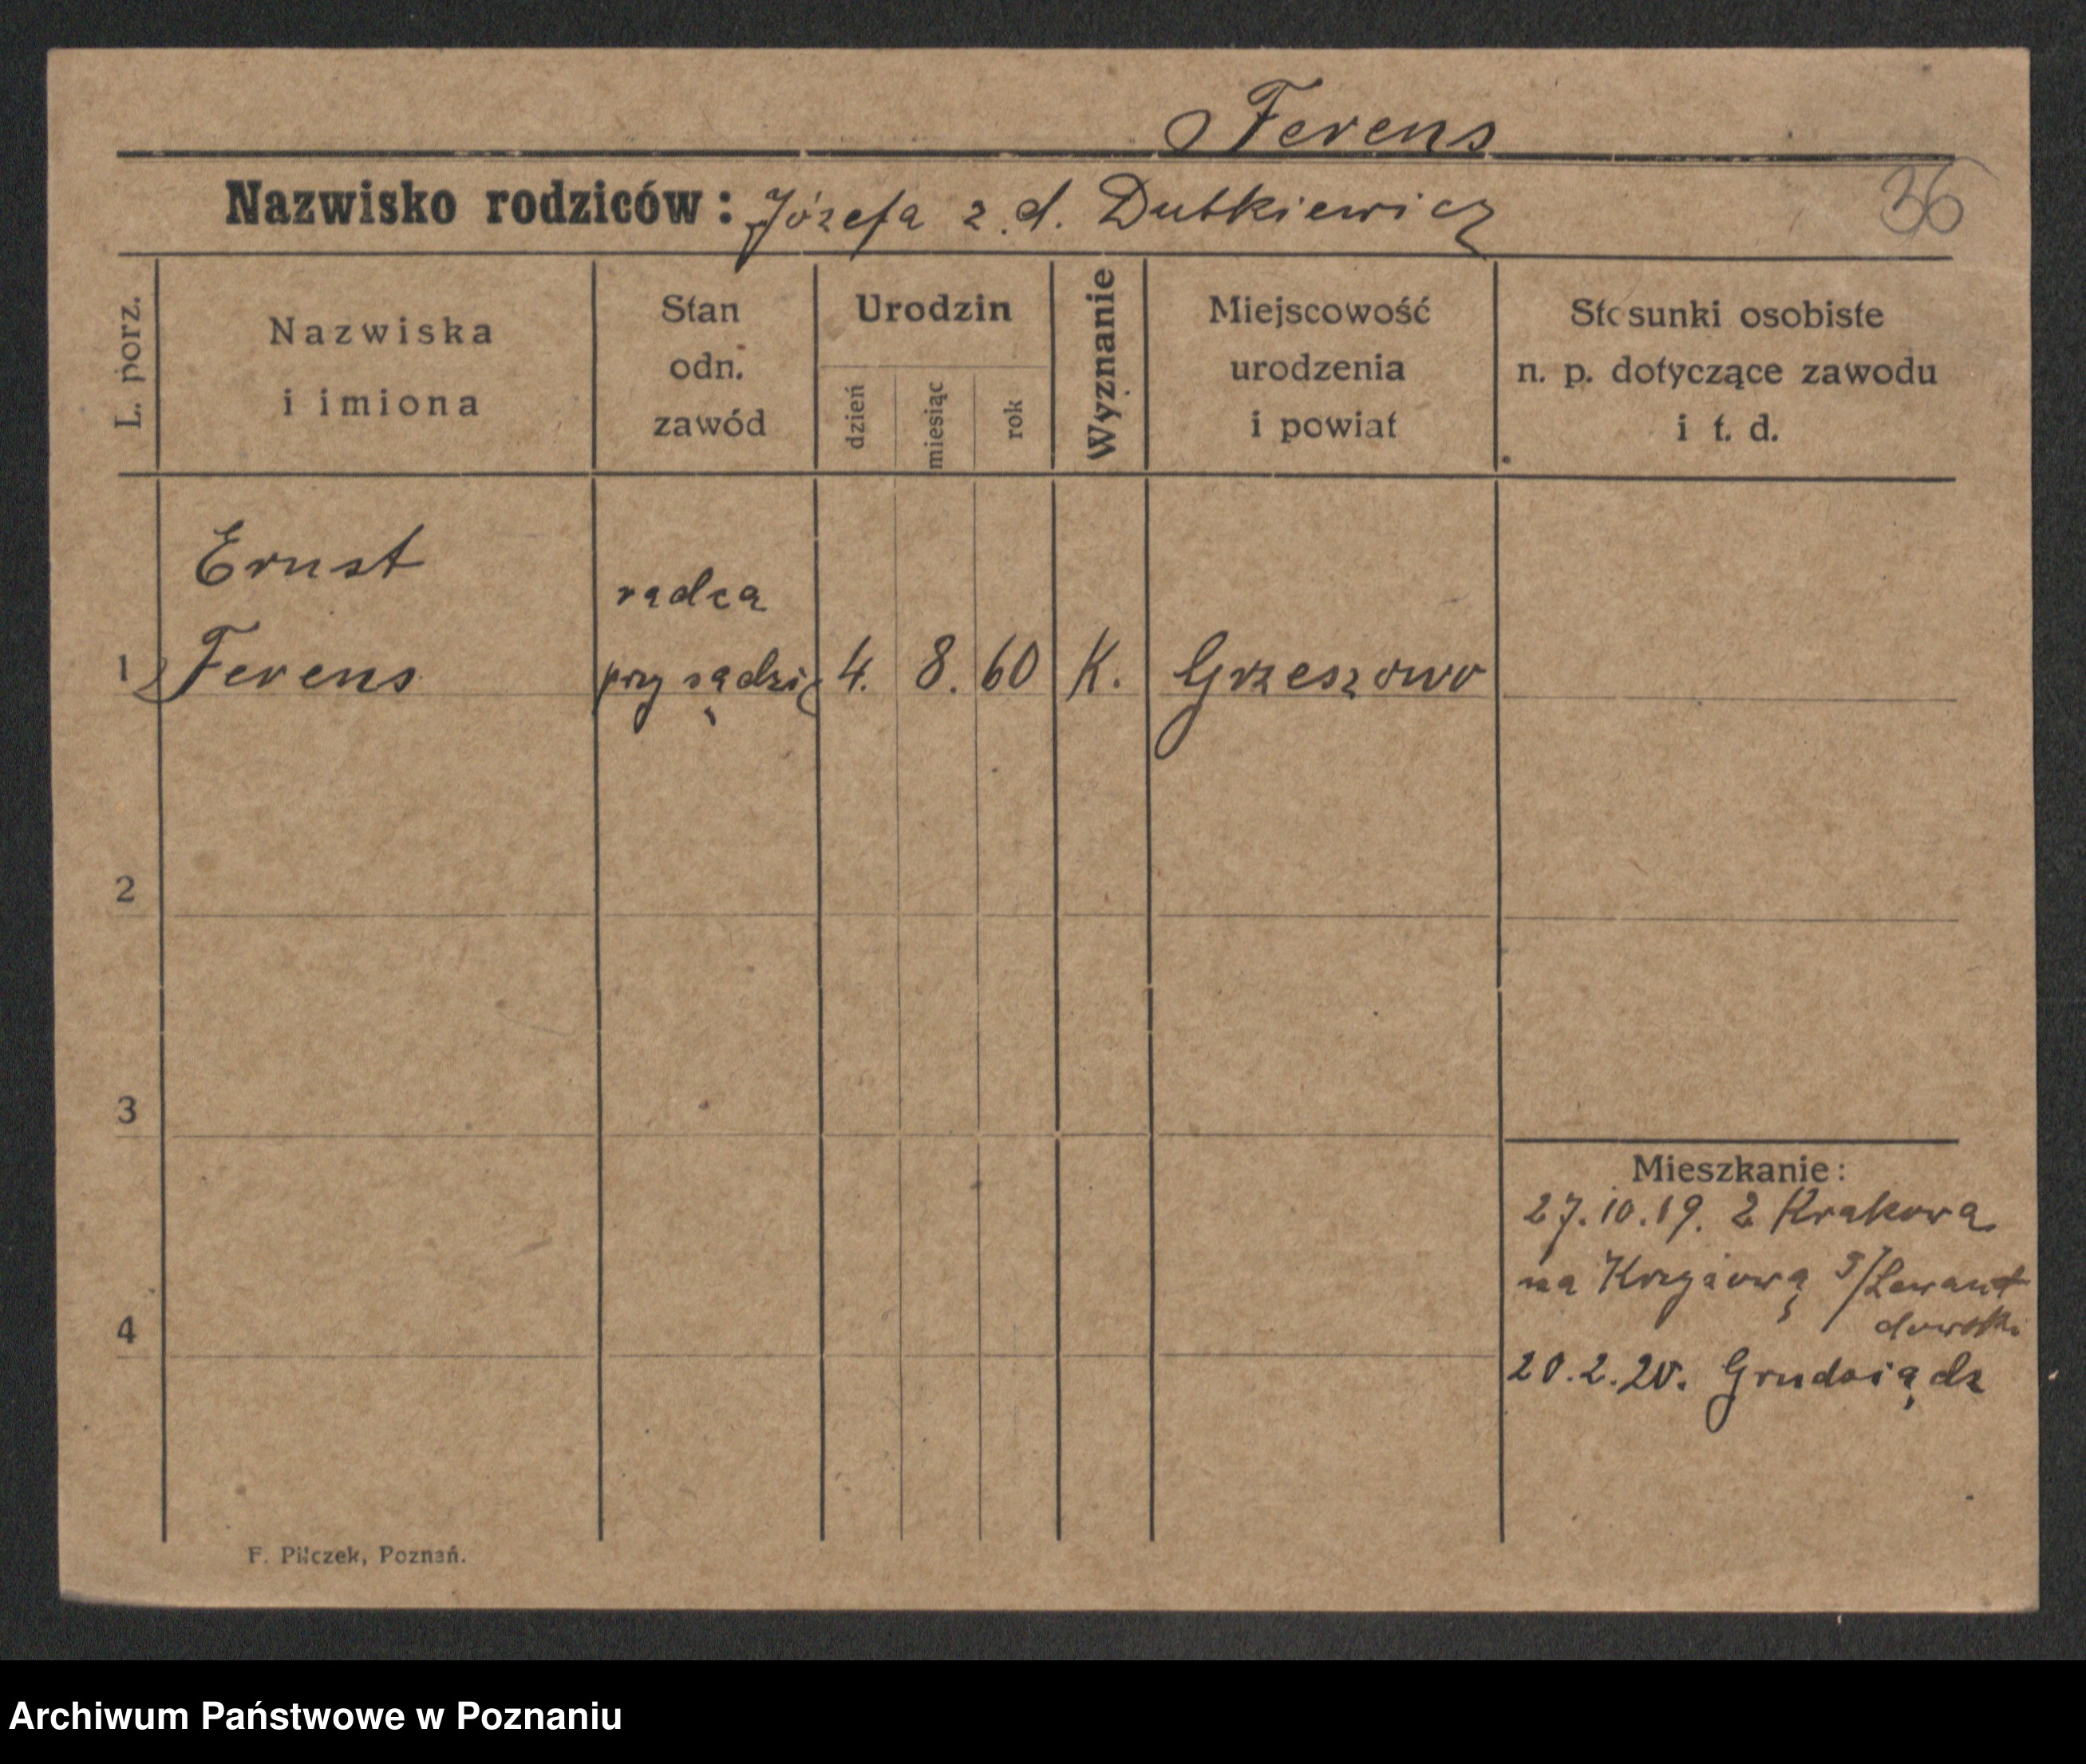 Ferens
Nazwisko rodziców: Józefa z. d. Dutkiewicz
36
L. porz.
Nazwiska
i imiona
Stan
odn.
zawód
Urodzin
dzień
miesiąc
rok
Wyznanie
Miejscowość
urodzenia
i powiat
Stosunki osobiste
n. p. dotyczące zawodu
i t. d.
Ernst
radca
1 Ferens przy sądzie 4. 8. 60 K. Grzeszowo
2
3
Mieszkanie:
27.10.19. z Krakowa
na Krzyżową
4
20.2.20. Grudziądz
F. Pilczek, Poznań.
Archiwum Państwowe w Poznaniu